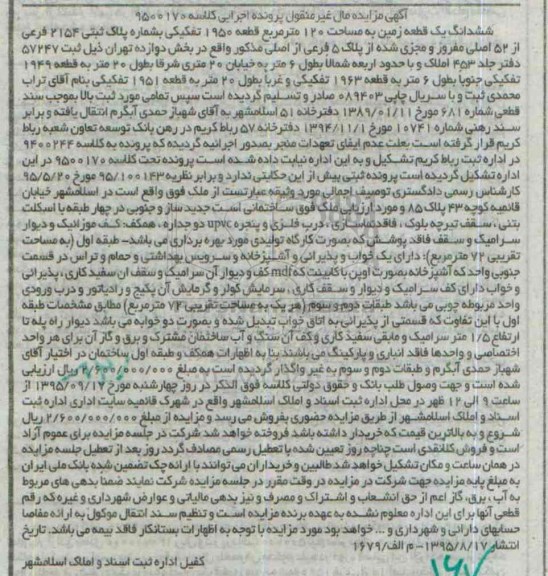 آگهی مزایده مال غیرمنقول پرونده اجرایی کلاسه ۹۵۰۰۱۷۰
ششدانگ یک قطعه زمین به مساحت ۱۲۰ مترمربع قطعه ۱۹۵۰ تفکیکی بشماره پلاک ثبتی ۲۱۵۴ فرعی
از ۵۲ اصلی مفروز و مجزی شده از پلاک ۵ فرعی از اصلی مذکور واقع در بخش دوازده تهران ذیل ثبت ۵۷۲۴۷
دفتر جلد ۴۵۳ املاک و با حدود اربعه شمالا بطول ۶ متر به خیابان ۲۰ متری شرقا بطول ۲۰ متر به قطعه ۱۹۴۹
تفکیکی جنوبا بطول ۶ متر به قطعه ۱۹۶۳ تفکیکی و غربا بطول ۲۰ متر به قطعه ۱۹۵۱ تفکیکی بنام آقای تراب
محمدی ثبت و با سریال چاپی ۰۸۹۴۰۳ صادر و تسلیم گردیده است سپس تمامی مورد ثبت بالا بموجب سند
قطعی شماره ۶۸۱ مورخ ۱۳۸۹/۰۱/۱۱ دفترخانه ۵۱ اسلامشهر به آقای شهباز حمدی آبگرم انتقال یافته و برابر
سند رهنی شماره ۱۰۷۴۱ مورخ ۱۳۹۴/۱۱/۱ دفترخانه ۵۷ رباط کریم در رهن بانک توسعه تعاون شعبه رباط
کریم قرار گرفته است بعلت عدم ایفای تعهدات منجر بصدور اجرائیه گردیده که پرونده به کلاسه ۹۴۰۰۲۴۴
در اداره ثبت رباط کریم تشکیل و به این اداره نیابت داده شده است پرونده تحت کلاسه ۹۵۰۰۱۷۰ در این
اداره تشکیل گردیده است پرونده ثبتی بیش از این حکایتی ندارد و برابر نظریه ۹۵/۱۰۰۱۴۳ مورخ ۹۵/۵/۲۰
کارشناس رسمی دادگستری توصیف اجمالی مورد وثیقه عبارتست از ملک فوق واقع است در اسلامشهر خیابان
قائمیه کوچه ۴۳ پلاک ۸۵ و مورد ارزیابی ملک فوق ساختمانی است جدید ساز و جنوبی در چهار طبقه با اسکلت
بتنی، سقف تیرچه بلوک، فاقد نماسازی، درب فلزی و پنجره upvc دو جداره، همکف: کف موزائیک و دیوار
سرامیک و سقف فاقد پوشش که بصورت کارگاه تولیدی مورد بهره برداری می باشد- طبقه اول (به مساحت
تقریبی ۷۲ مترمربع): دارای یک خواب و پذیرائی و آشپزخانه و سرویس بهداشتی و حمام و تراس در قسمت
جنوبی واحد که آشپزخانه بصورت اوپن با کابینت که mdf کف و دیوار آن سرامیک و سقف ان سفید کاری، پذیرائی
و خواب دارای کف سرامیک و دیوار و سقف گاری، سرمایش کولر و گرمایش آن پکیج و رادیاتور و درب ورودی
واحد مربوطه چوبی می باشد طبقات دوم و سوم (هر یک به مساحت تقریبی ۷۲ مترمربع) مطابق مشخصات طبقه
اول با این تفاوت که قسمتی از پذیرائی به اتاق خواب تبدیل شده و بصورت دو خوابه می باشد دیوار راه پله تا
ارتفاع ۱/۵ متر سرامیک و مابقی سفید کاری و کف آن سنگ و آب ساختمان مشترک و برق و گاز آن برای هر واحد
اختصاصی و واحدها فاقد انباری و پارکینگ می باشند بنا به اظهارات همکف و طبقه اول ساختمان در اختیار آقای
شهباز حمدی آبگرم و طبقات دوم و سوم به غیر واگذار گردیده است به مبلغ ۲/۶۰۰/۰۰۰/۰۰۰ ریال ارزیابی
شده است و جهت وصول طلب بانک و حقوق دولتی کلاسه فوق الذکر در روز چهارشنبه مورخ ۱۳۹۵/۰۹/۱۷ از
ساعت ۹ الی ۱۲ ظهر در محل اداره ثبت اسناد و املاک اسلامشهر واقع در شهرک قائمیه سایت اداری اداره ثبت
اسناد و املاک اسلامشهر از طریق مزایده حضوری بفروش می رسد و مزایده از مبلغ ۲/۶۰۰/۰۰۰/۰۰۰ ریال
شروع و به بالاترین قیمت که خریدار داشته باشد فروخته خواهد شد شرکت در جلسه مزایده برای عموم آزاد
است و فروش کلا نقدی است چنانچه روز تعیین شده با تعطیل رسمی مصادف گردد روز بعد از تعطیل جلسه مزایده
در همان ساعت و مکان تشکیل خواهد شد طالبین و خریداران می توانند با ارائه چک تضمین شده بانک ملی ایران
به مبلغ پایه مزایده جهت شرکت در مزایده در وقت مقرر در جلسه مزایده شرکت نمایند ضمنا بدهی های مربوط
به آب، برق، گاز اعم از حق انشعاب و اشتراک و مصرف و نیز بدهی مالیاتی و عوارض شهرداری و غیره که رقم
قطعی آنها برای این اداره معلوم نشده به عهده برنده مزایده است و تنظیم سند انتقال موکول به ارائه مفاصا
حسابهای دارائی و شهرداری و ... خواهد بود مورد مزایده با توجه به اظهارات بستانکار فاقد بیمه می باشد. تاریخ
انتشار ۱۳۹۵/۸/۱۷- م الف/۱۶۷۹
کفیل اداره ثبت اسناد و املاک اسلامشهر